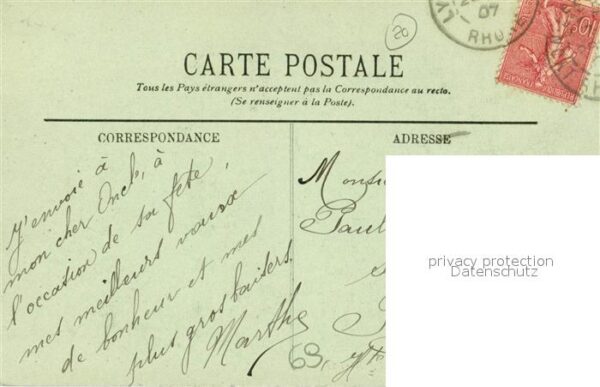 07
RHONE
20
10
REPUBLIQUE FRANÇAISE
CARTE POSTALE
Tous les Pays étrangers n'acceptent pas la Correspondance au recto.
(Se renseigner à la Poste).
CORRESPONDANCE
ADRESSE
J'envoie à
mon cher Oncle, à
l'occasion de sa fête,
mes meilleurs vœux
de bonheur et mes
plus gros baisers.
Marthe
Monsi
Paul
privacy protection
Datenschutz
69